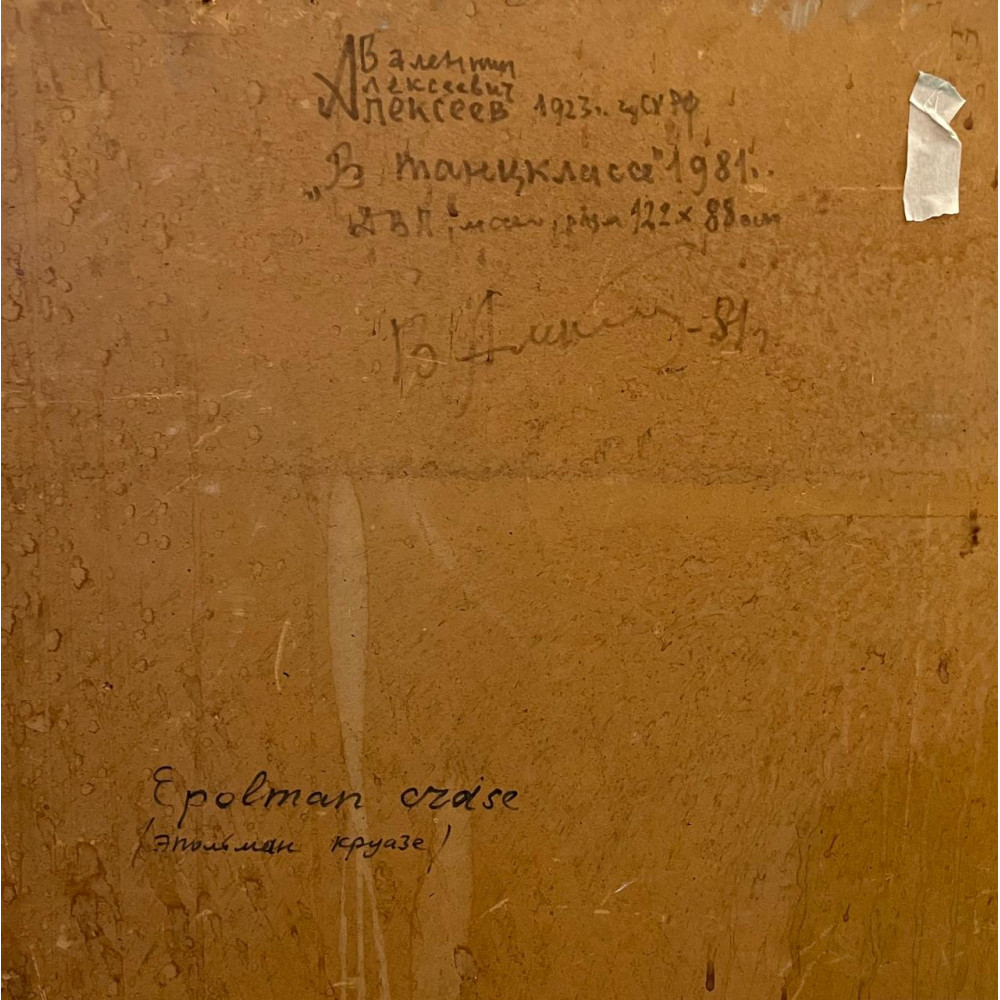 Валентин
Алексеевич
Алексеев 1923г. чСХРФ
"В танцкласса" 1981г.
ДВП, масл, разм 122 x 88 см
В Алексеев -81г
Epolman croise
(Эпольман круазе)